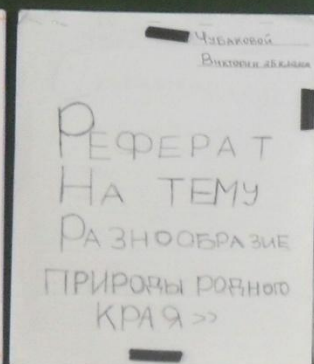 Чубаковой
Виктории 2б класса
Реферат
На тему
Разнообразие
природы родного
края»